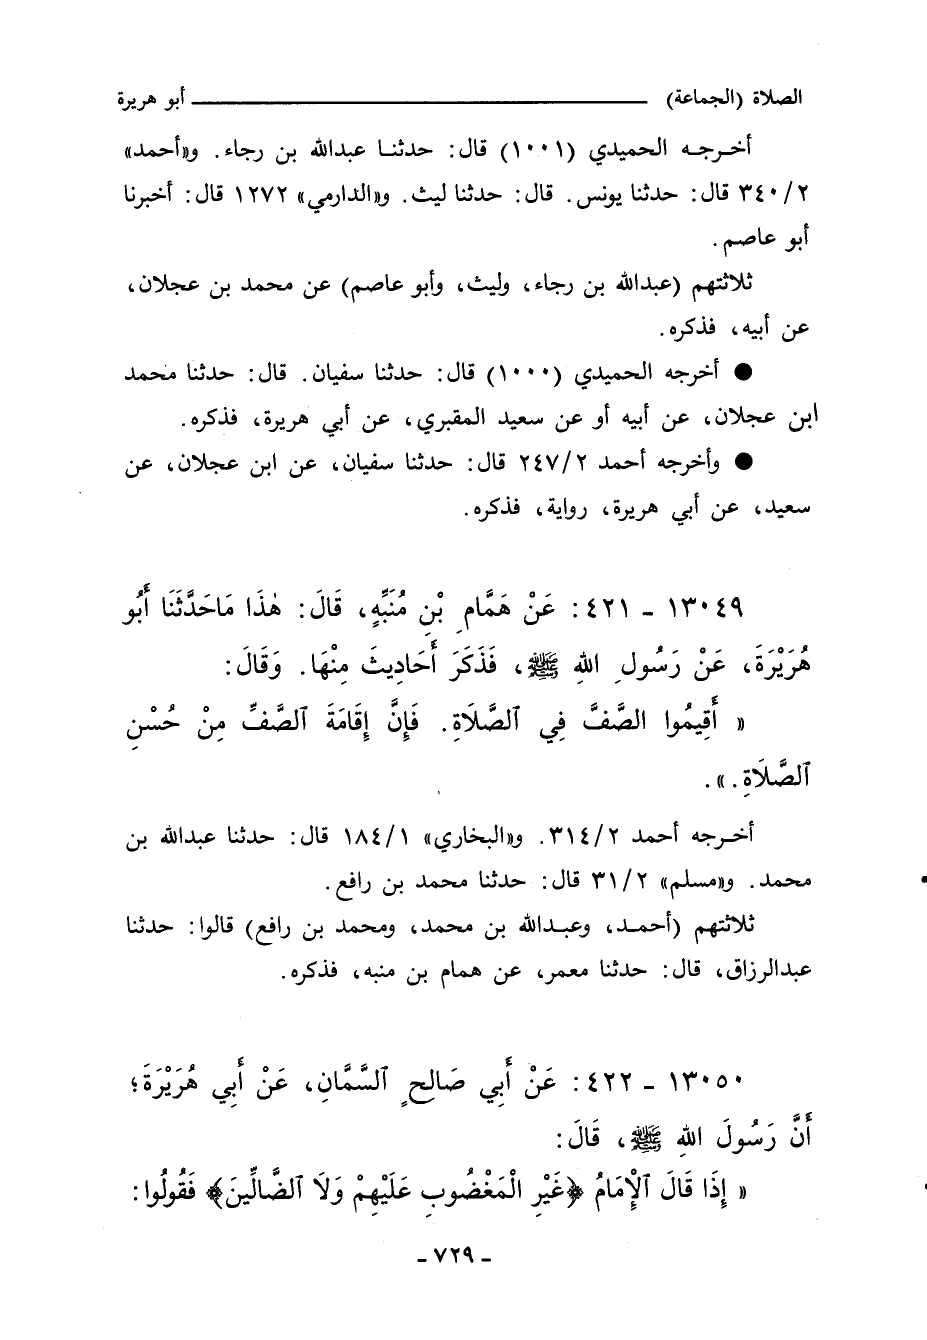 الصلاة (الجماعة) ــــــــــــــــــــ أبو هريرة
أخرجه الحميدي (١٠٠١) قال: حدثنا عبدالله بن رجاء. و«أحمد»
٣٤٠/٢ قال: حدثنا يونس. قال: حدثنا ليث. و«الدارمي» ١٢٧٢ قال: أخبرنا
أبو عاصم.
ثلاثتهم (عبدالله بن رجاء، وليث، وأبو عاصم) عن محمد بن عجلان،
عن أبيه، فذكره.
● أخرجه الحميدي (١٠٠٠) قال: حدثنا سفيان. قال: حدثنا محمد
ابن عجلان، عن أبيه أو عن سعيد المقبري، عن أبي هريرة، فذكره.
● وأخرجه أحمد ٢٤٧/٢ قال: حدثنا سفيان، عن ابن عجلان، عن
سعيد، عن أبي هريرة، رواية، فذكره.
١٣٠٤٩ - ٤٢١: عَنْ هَمَّامِ بْنِ مُنَبِّهٍ، قَالَ: هٰذَا مَاحَدَّثَنَا أَبُو
هُرَيْرَةَ، عَنْ رَسُولِ اللهِ ﷺ، فَذَكَرَ أَحَادِيثَ مِنْهَا. وَقَالَ:
« أَقِيمُوا الصَّفَّ فِي ٱلصَّلَاةِ. فَإِنَّ إِقَامَةَ ٱلصَّفِّ مِنْ حُسْنِ
ٱلصَّلَاةِ.».
أخرجه أحمد ٣١٤/٢. و«البخاري» ١٨٤/١ قال: حدثنا عبدالله بن
محمد. و«مسلم» ٣١/٢ قال: حدثنا محمد بن رافع.
ثلاثتهم (أحمد، وعبدالله بن محمد، ومحمد بن رافع) قالوا: حدثنا
عبدالرزاق، قال: حدثنا معمر، عن همام بن منبه، فذكره.
١٣٠٥٠ - ٤٢٢: عَنْ أَبِي صَالِحٍ ٱلسَّمَّانِ، عَنْ أَبِي هُرَيْرَةَ؛
أَنَّ رَسُولَ اللهِ ﷺ، قَالَ:
« إِذَا قَالَ ٱلْإِمَامُ ﴿غَيْرِ الْمَغْضُوبِ عَلَيْهِمْ وَلَا ٱلضَّالِّينَ﴾ فَقُولُوا:
- ٧٢٩ -